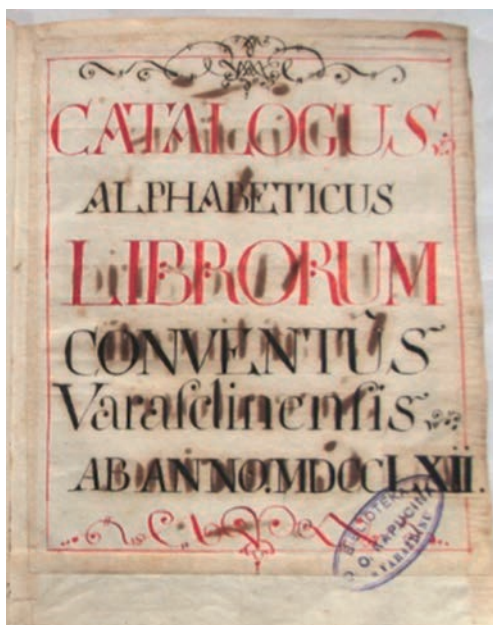 CATALOGUS
ALPHABETICUS
LIBRORUM
CONVENTÙS
Varaſdinenſis
AB ANNO. MDCCLXII.
BIBLIOTEKA
O. O. KAPUCINA
VARAŽDINE